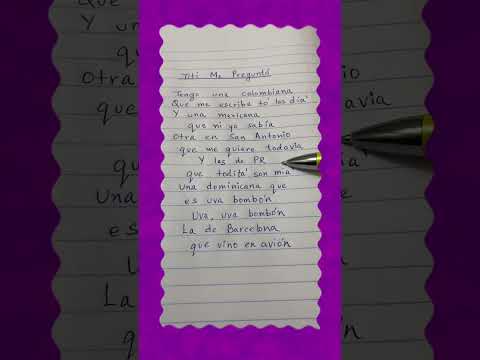 Titi Me Preguntó
Tengo una colombiana
Que me escribe to' los día'
Y una mexicana
que ni yo sabía
Otra en San Antonio
que me quiere todavía
Y las de PR
que todita' son mía
Una dominicana que
es uva bombón
Uva, uva bombón
La de Barcelona
que vino en avión